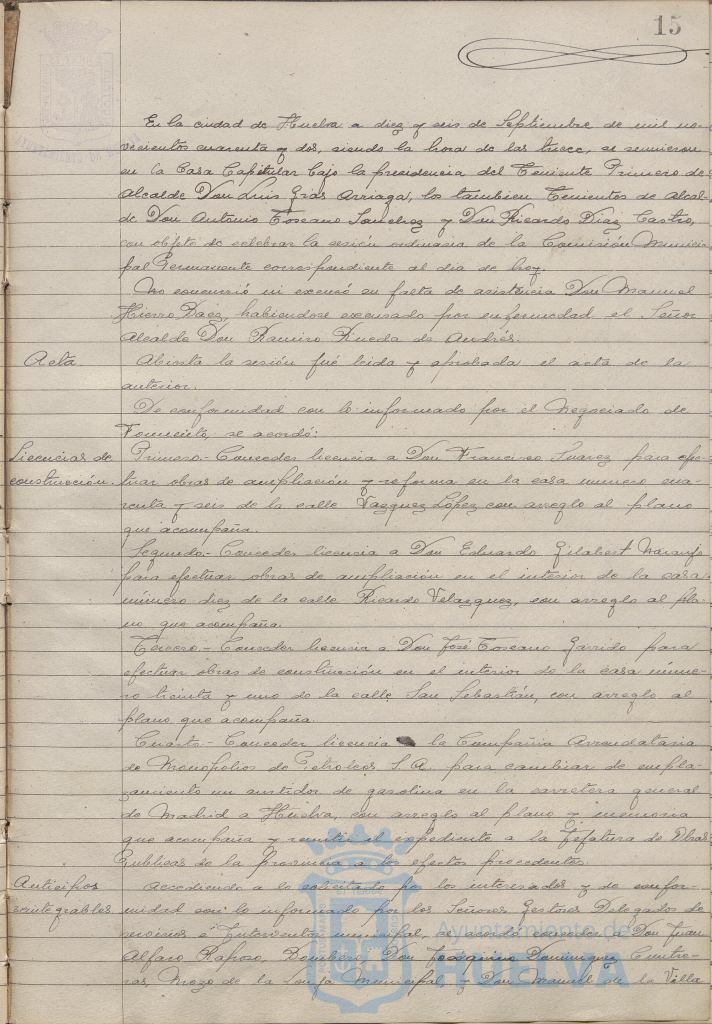 15
En la ciudad de Huelva a diez y seis de Septiembre de mil no-
vecientos cuarenta y dos, siendo la hora de las trece, se reunieron
en la Casa Capitular bajo la presidencia del Teniente Primero de
Alcalde Don Luis Gras Arriaga, los tambien Tenientes de Alcal-
de Don Antonio Toscano Sanchez y Don Ricardo Diaz Castro,
con objeto de celebrar la sesión ordinaria de la Comisión Munici-
pal Permanente correspondiente al dia de hoy.
No concurrió ni excusó su falta de asistencia Don Manuel
Hierro Daéz, habiendose excusado por enfermedad el Señor
Alcalde Don Ramiro Rueda de Andrés.
Acta
Abierta la sesión fué leida y aprobada el acta de la
anterior.
De conformidad con lo informado por el Negociado de
Fomento, se acordó:
Licencias de
construcción.
Primero.- Conceder licencia a Don Francisco Suarez para efec-
tuar obras de ampliación y reforma en la casa numero cua-
renta y seis de la calle Vazquez Lopez con arreglo al plano
que acompaña.
Segundo.- Conceder licencia a Don Eduardo Gilabert Naranjo
para efectuar obras de ampliación en el interior de la casa
número diez de la calle Ricardo Velazquez, con arreglo al pla-
no que acompaña.
Tercero.- Conceder licencia a Don José Toscano Garrido para
efectuar obras de construcción en el interior de la casa núme-
ro treinta y uno de la calle San Sebastián, con arreglo al
plano que acompaña.
Cuarto.- Conceder licencia a la Compañia Arrendataria
de Monopolios de Petroleos S.A. para cambiar de empla-
zamiento un surtidor de gasolina en la carretera general
de Madrid a Huelva, con arreglo al plano y memoria
que acompaña y remitir el expediente a la Jefatura de Obras
Publicas de la provincia a los efectos procedentes.
Anticipos
reintegrables
Accediendo a lo solicitado por los interesados y de confor-
midad con lo informado por los Señores Gestores Delegados de
servicios é Interventor municipal, se acordó conceder a Don Juan
Alfaro Raposo, Bombero, Don Joaquino Dominguez Contre-
ras, Mozo de la Lonja Municipal, y Don Manuel de la Villa
Ayuntamiento de
HUELVA